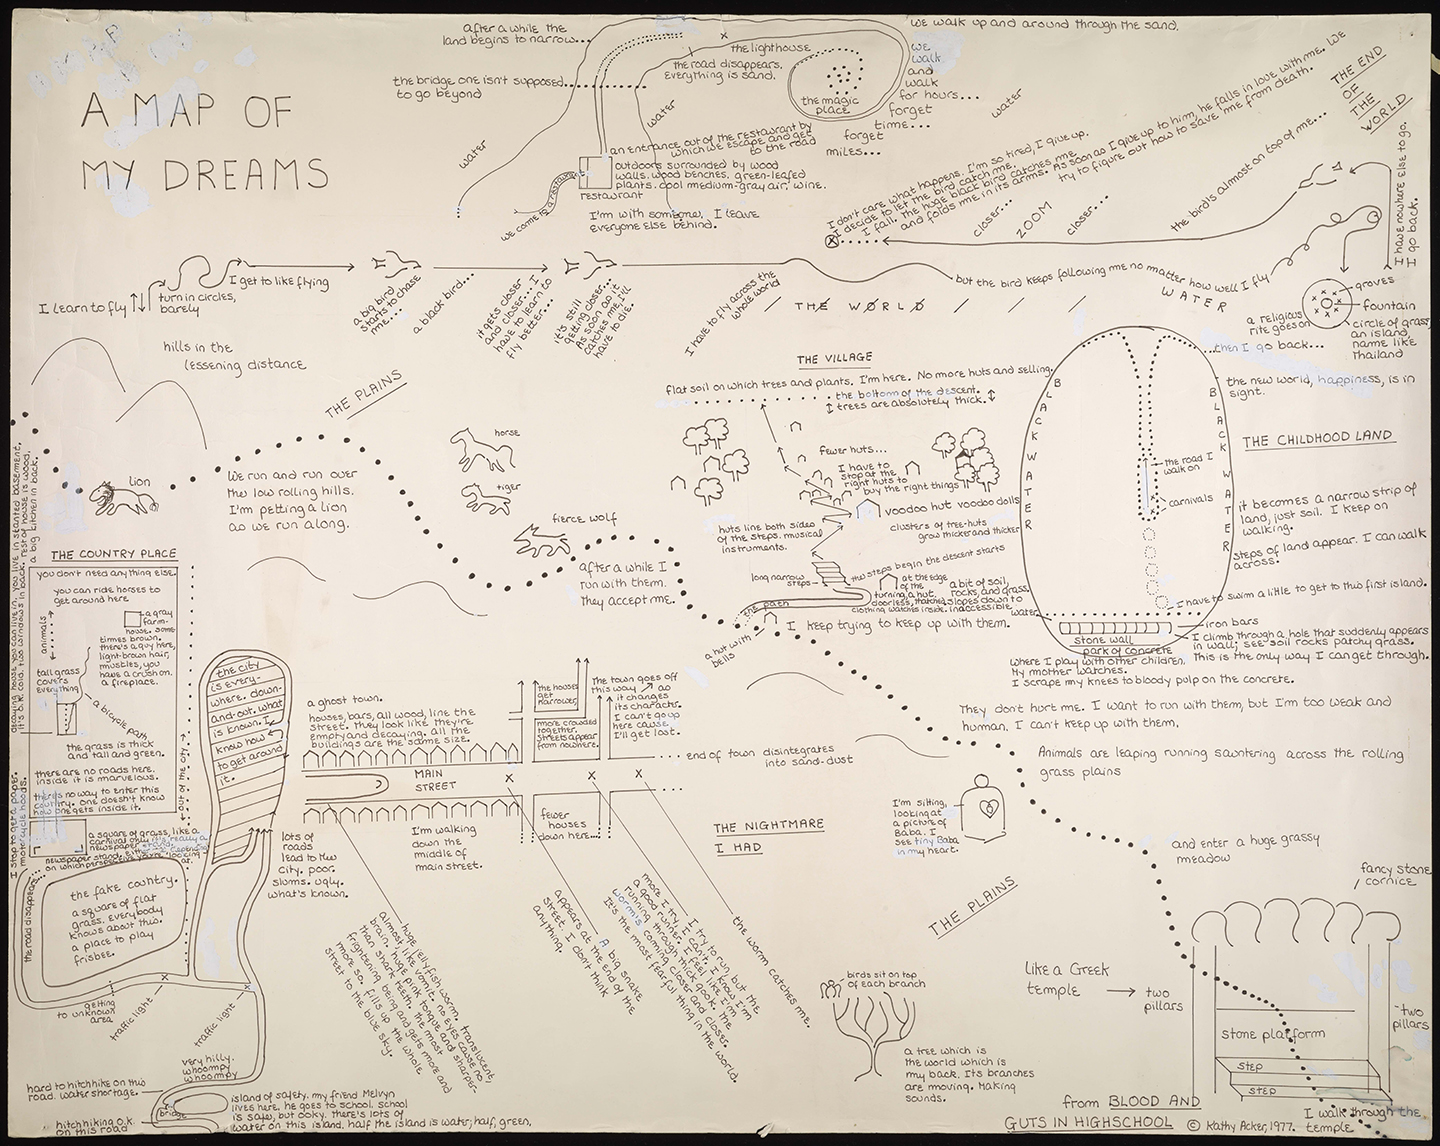 A MAP OF
MY DREAMS
after a while the
land begins to narrow...
the bridge one isn't supposed........
to go beyond
the lighthouse
the road disappears.
everything is sand.
the magic
place
we walk up and around through the sand.
we
walk
and
walk
for hours...
forget
time...
forget
miles...
water
water
water
an entrance out of the restaurant by
which we escape and get
to the road
outdoors surrounded by wood
walls. wood benches. green-leafed
plants. cool medium-gray air, wine.
restaurant
we come to a restaurant
I'm with someone. I leave
everyone else behind.
I don't care what happens. I'm so tired, I give up.
I decide to let the bird catch me.
I fall. The huge black bird catches me
and folds me in its arms. As soon as I give up to him, he falls in love with me. We
try to figure out how to save me from death.
THE END
OF
THE
WORLD
closer...
ZOOM
closer...
the bird is almost on top of me...
I have nowhere else to go.
I go back.
I learn to fly
turn in circles,
barely
I get to like flying
a big bird
starts to chase
me...
a black bird...
it gets closer
and closer... I
have to learn to
fly better...
it's still
getting closer.
As soon as it
catches me, I'll
have to die.
I have to fly across the
whole world
but the bird keeps following me no matter how well I fly
THE WORLD
WATER
groves
fountain
circle of grass,
an island
name like
Thailand
a religious
rite goes on
...then I go back...
hills in the
lessening distance
THE PLAINS
THE VILLAGE
flat soil on which trees and plants. I'm here. No more huts and selling.
the bottom of the descent.
trees are absolutely thick.
fewer huts...
I have to
stop at the
right huts to
buy the right things
voodoo hut voodoo dolls
clusters of tree-huts
grow thicker and thicker
huts line both sides
of the steps. musical
instruments.
the steps begin the descent starts
long narrow
steps
at the edge
of the
turning a hut,
doorless, thatched,
clothing watches inside.
a bit of soil,
rocks, and grass,
slopes down to
inaccessible
water
the path
a hut with
bells
I keep trying to keep up with them.
BLACK WATER
BLACK WATER
the new world, happiness, is in
sight.
THE CHILDHOOD LAND
the road I
walk on
carnivals
it becomes a narrow strip of
land, just soil. I keep on
walking.
steps of land appear. I can walk
across.
I have to swim a little to get to this first island.
iron bars
I climb through a hole that suddenly appears
in wall; see soil rocks patchy grass.
This is the only way I can get through.
stone wall
park of concrete
where I play with other children.
My mother watches.
I scrape my knees to bloody pulp on the concrete.
lion
We run and run over
the low rolling hills.
I'm petting a lion
as we run along.
horse
tiger
fierce wolf
after a while I
run with them.
They accept me.
They don't hurt me. I want to run with them, but I'm too weak and
human, I can't keep up with them.
Animals are leaping running sauntering across the rolling
grass plains
decaying house you can live in. you live in slanted basement,
it's O.K. cold. two windows in back. rest of house is wood,
a big kitchen in back.
THE COUNTRY PLACE
you don't need anything else.
you can ride horses to
get around here
animals
a gray
farm-
house. some
times brown.
there's a guy here,
light-brown hair,
muscles, you
have a crush on.
a fireplace.
tall grass
covers
everything
a bicycle path
the grass is thick
and tall and green.
there are no roads here.
inside it is marvelous.
there's no way to enter this
country. one doesn't know
how one gets inside it.
out of the city
a square of grass, like a
carnival only it's really a
newspaper stand.
newspaper stand. either... depends
on which perspective you're looking
at.
I stop to get a paper.
motorcycle hoods.
the road disappears...
the fake country.
a square of flat
grass. everybody
knows about this.
a place to play
frisbee.
getting
to unknown
area
traffic light
traffic light
the city
is every-
where. down-
and-out. what
is known. I
know how
to get around
it.
lots of
roads
lead to the
city. poor.
slums. ugly.
what's known.
very hilly.
whoompy
whoompy
hard to hitchhike on this
road. water shortage.
bridge
hitchhiking o.k.
on this road
island of safety. my friend Melvyn
lives here. he goes to school. school
is safe, but ooky. there's lots of
water on this island. half the island is water; half, green.
a ghost town.
houses, bars, all wood, line the
street. They look like they're
empty and decaying. all the
buildings are the same size.
MAIN
STREET
the houses
get
narrower
more crowded
together.
streets appear
from nowhere.
The town goes off
this way as
it changes
its character.
I can't go up
here cause
I'll get lost.
end of town disintegrates
into sand-dust
fewer
houses
down here...
I'm walking
down the
middle of
main street.
THE NIGHTMARE
I HAD
huge jellyfish worm. translucent,
almost like vomit. no eyes cause no
brain. huge pink tongue and sharper-
than shark teeth. The most
frightening being and gets more and
more so. fills up the whole
street to the blue sky.
A big snake
appears at the end of the
street. I don't think
anything.
I try to run, but the
more I try, I can't. I know I'm
a good runner. I feel like I'm
running through thick gook. The
worm's coming closer and closer.
It's the most fearful thing in the world.
the worm catches me.
I'm sitting,
looking at
a picture of
Baba. I
see tiny Baba
in my heart.
THE PLAINS
birds sit on top
of each branch
a tree which is
the world which is
my back. Its branches
are moving. Making
sounds.
and enter a huge grassy
meadow
fancy stone
cornice
like a Greek
temple
two
pillars
-two
pillars
stone platform
step
step
I walk through the
temple
from BLOOD AND
GUTS IN HIGHSCHOOL © Kathy Acker, 1977.